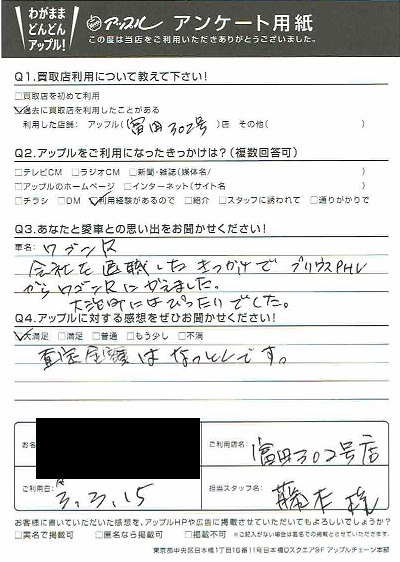 わがまま
どんどん
アップル!
アップル アンケート用紙
この度は当店をご利用いただきありがとうございました。
Q1.買取店利用について教えて下さい!
□買取を初めて利用
☑過去に買取店を利用したことがある
利用した店舗: アップル(富田302号)店 その他( )
Q2.アップルをご利用になったきっかけは?(複数回答可)
□テレビCM □ラジオCM □新聞・雑誌(媒体名/ )
□アップルのホームページ □インターネット(サイト名 )
□チラシ □DM ☑利用経験があるので □紹介 □スタッフに誘われて □通りがかりで
Q3.あなたと愛車との思い出をお聞かせください!
車名: ワゴンR
会社を退職したきっかけで プリウスPHV
からワゴンRにかえました。
にはぴったりでした。
Q4.アップルに対する感想をぜひお聞かせください!
☑大満足 □満足 □普通 □もう少し □不満
査定金額はなっとくです。
お名
ご利用店名: 富田302号店
ご利用日: 3.3.15
担当スタッフ名:
お客様に書いていただいた感想を、アップルHPや広告に掲載させていただいてもよろしいでしょうか?
□実名で掲載可 □匿名なら掲載可 □掲載不可 ※ご記入がない場合は匿名での掲載とさせていただきます。
東京都中央区日本橋1丁目16番11号日本橋Dスクエア9F アップルチェーン本部